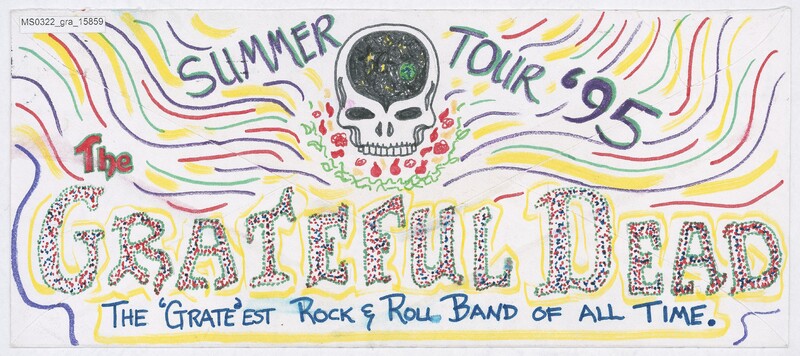 MS0322_gra_15859
SUMMER TOUR '95
The
GRATEFUL DEAD
THE 'GRATE'EST ROCK & ROLL BAND OF ALL TIME.